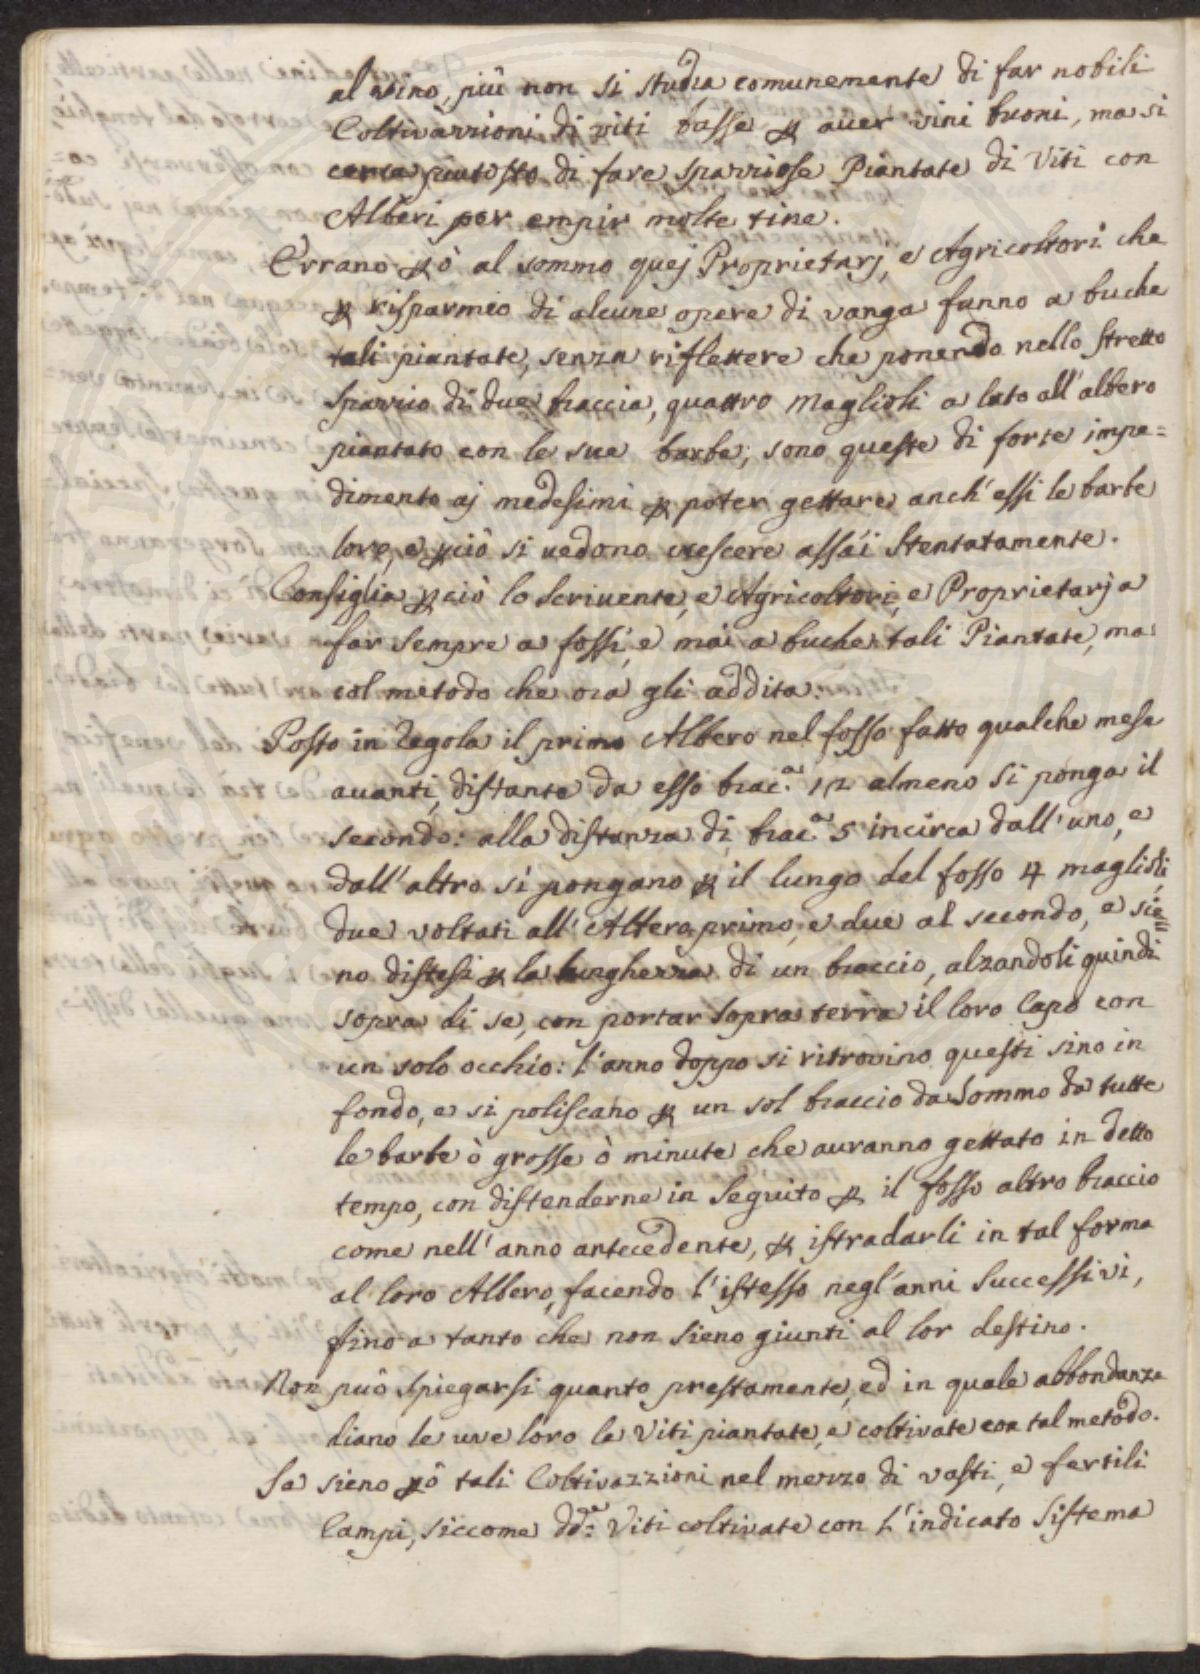 al vino, più non si studia comunemente di far nobili
Coltivazzioni di viti basse ꝑ auer vini buoni, ma si
cerca piutosto di fare spazziose Piantate di Viti con
Alberi per empir molte tine.
Errano ꝑò al sommo quej Proprietarj, e Agricoltori che
ꝑ risparmio di alcune opere di vanga fanno a buche
tali piantate, senza riflettere che ponendo nello stretto
spazzio di due braccia, quattro Maglioli a lato all'albero
piantato con le sue barbe, sono queste di forte impe=
dimento aj medesimi ꝑ poter gettare anch'essi le barbe
loro, e ꝑciò si vedono crescere assai stentatamente.
Consiglia ꝑciò lo scrivente, e Agricoltori, e Proprietarj a
far sempre a fossi, e mai a buche tali Piantate, ma
col metodo che ora gli addita:
Posto in regola il primo Albero nel fosso fatto qualche mese
avanti, distante da esso brac.ª 12 almeno si ponga il
secondo: alla distanza di brac.ª 5 incirca dall'uno, e
dall'altro si pongano ꝑ il lungo del fosso 4 maglioli,
due voltati all'Albero primo, e due al secondo, e sie=
no distesi ꝑ la lunghezza di un braccio, alzandoli quindi
sopra di se, con portar sopra terra il loro capo con
un solo occhio: l'anno doppo si ritrovino questi sino in
fondo, e si poliscano ꝑ un sol braccio da sommo da tutte
le barbe ò grosse ò minute che auranno gettato in detto
tempo, con distenderne in seguito ꝑ il fosso altro braccio
come nell'anno antecedente, ꝑ istradarli in tal forma
al loro Albero, facendo l'istesso negl'anni successivi,
fino a tanto che non sieno giunti al lor destino.
Non può spiegarsi quanto prestamente, ed in quale abbondanza
diano le uve loro le Viti piantate, e coltivate con tal metodo.
Se sieno ꝑò tali Coltivazzioni nel mezzo di vasti, e fertili
Campi, siccome dd.ᵉ Viti coltivate con l'indicato sistema